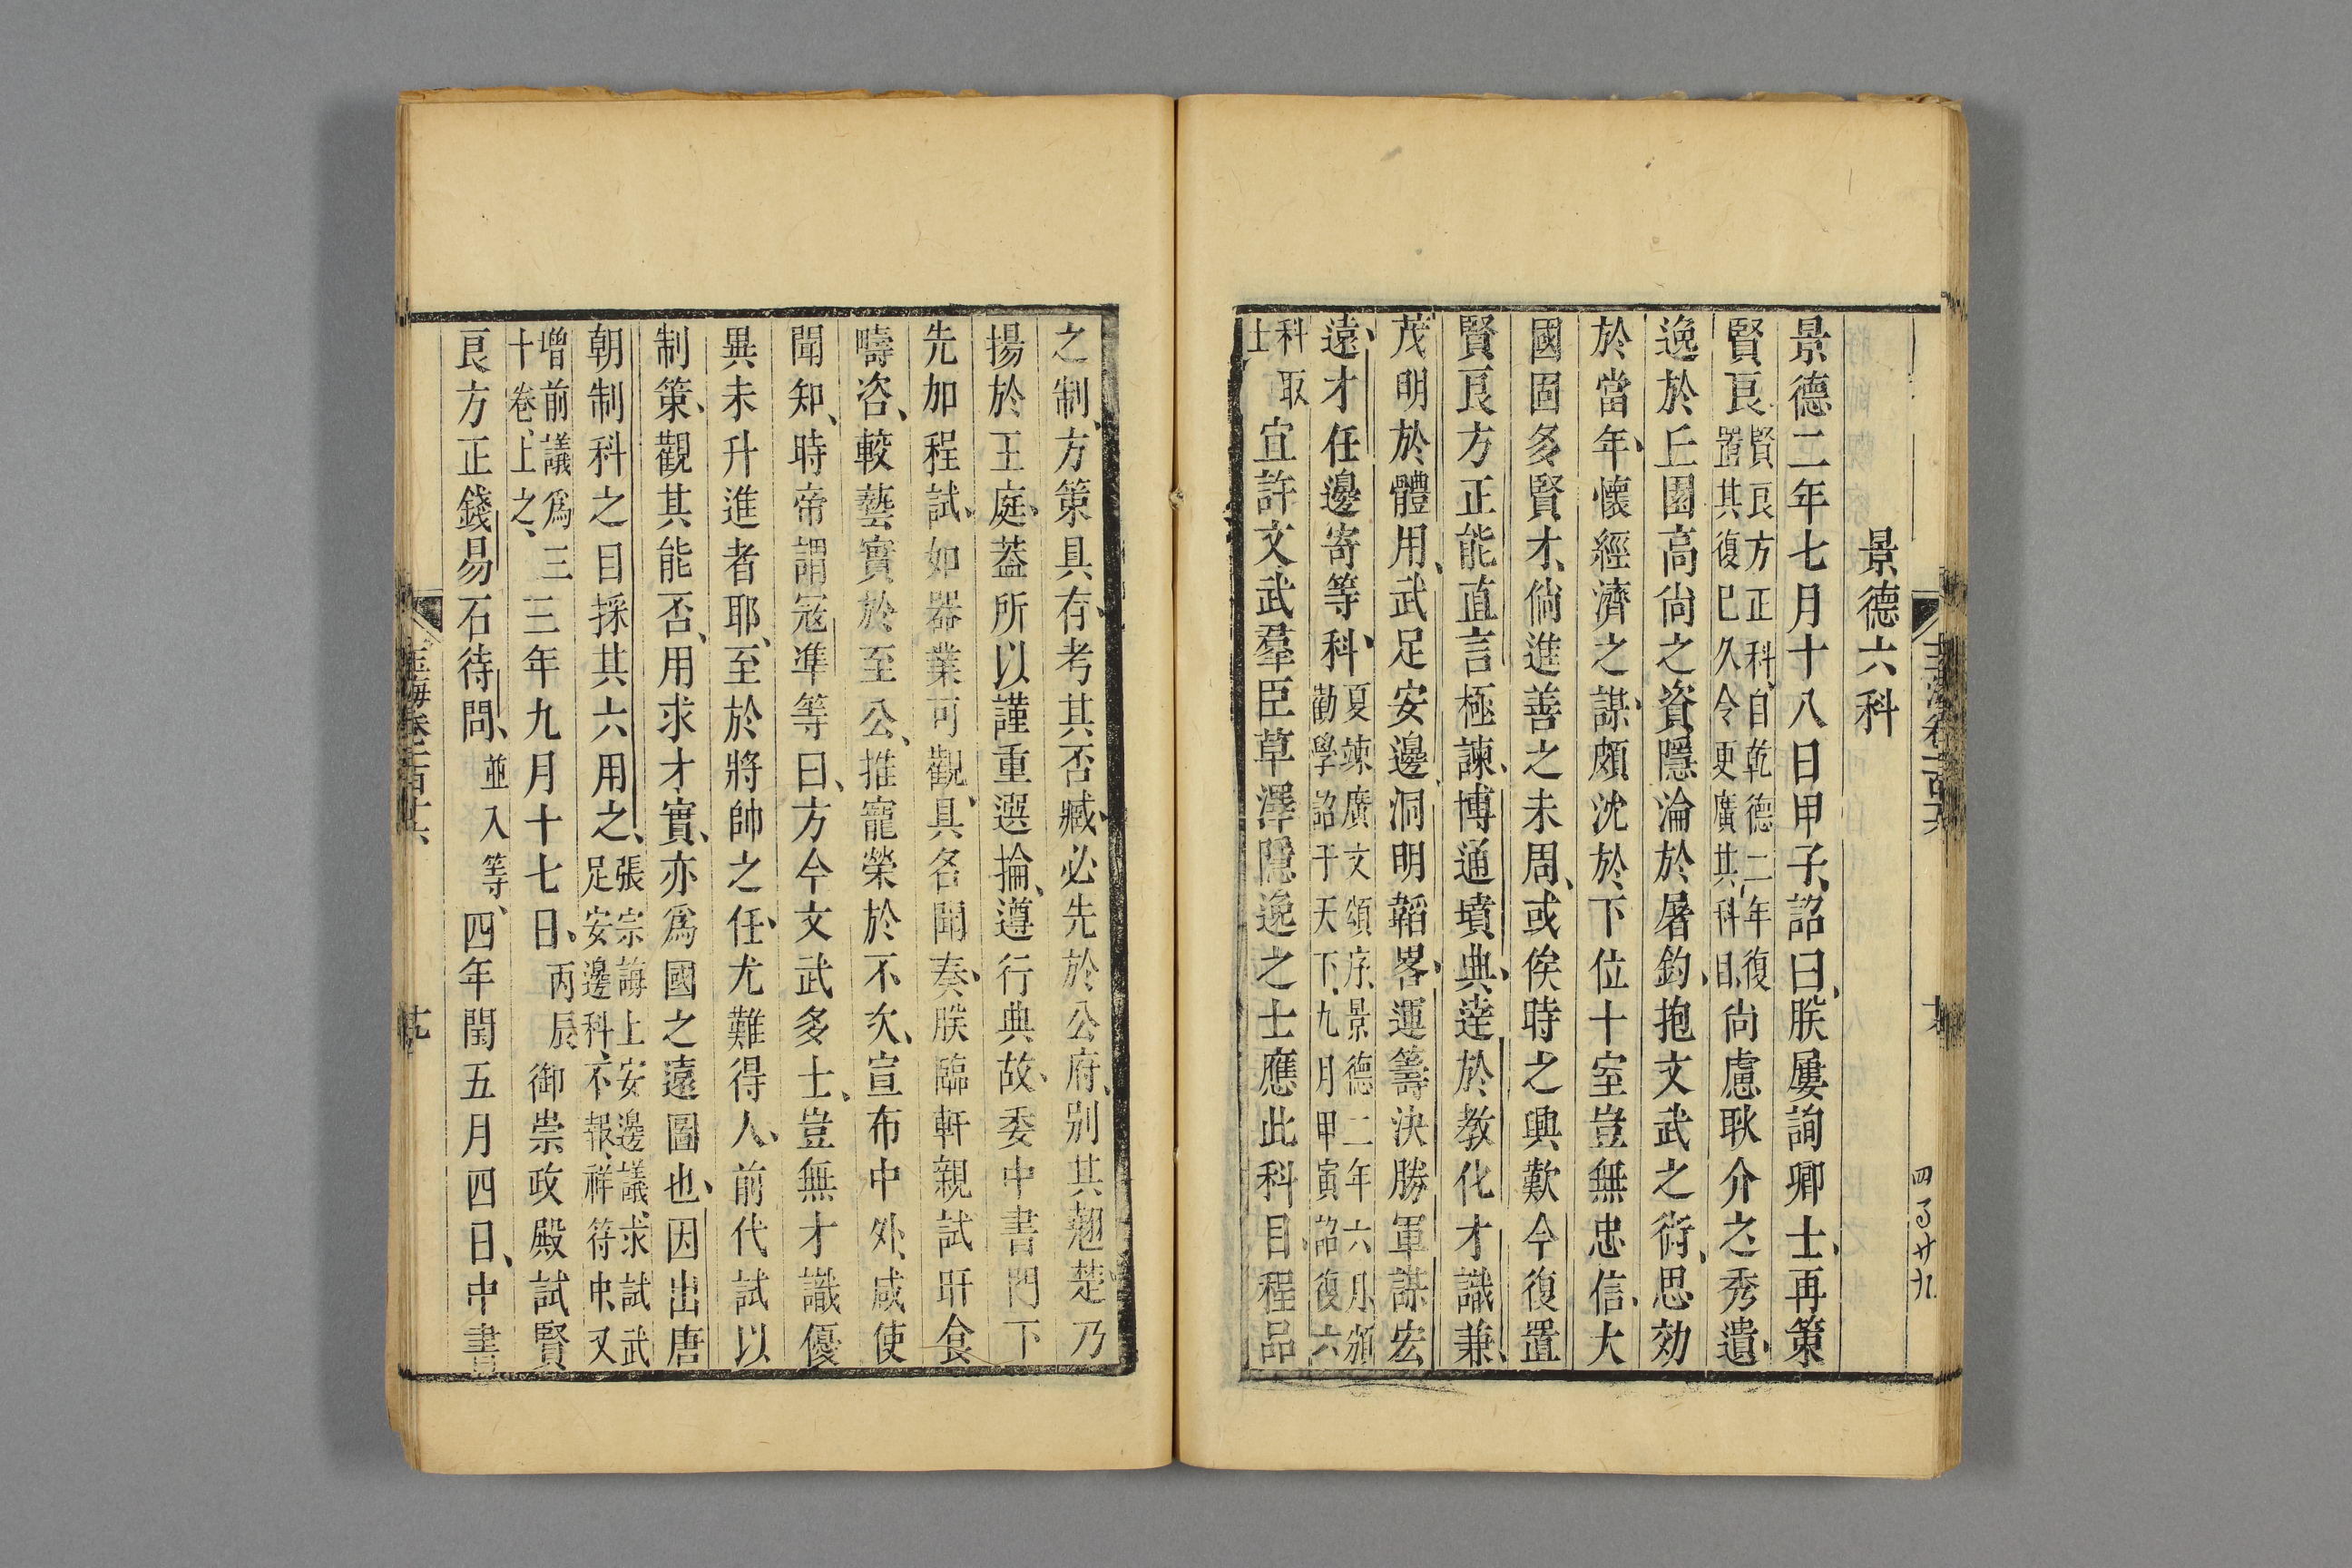 景德六科
景德二年七月十八日甲子、詔曰、朕屢詢卿士、再策
賢良賢良方正科、自乾德二年復置其復已久令更廣其科目、尚慮耿介之秀遺、
逸於丘園高尚之資隱淪於屠釣、抱文武之術、思効
於當年、懷經濟之謀、頗沈於下位十室豈無忠信、大
國固多賢才、倘進善之未周、或俟時之興歎今復置
賢良方正能直言極諫、博通墳典、達於教化才識兼、
茂明於體用、武足安邊、洞明韜畧、運籌決勝軍謀宏
遠、才任邊寄等科、夏竦廣文頌序、景德二年六月、頒勸學詔于天下、九月甲寅詔復六
科取士宜許文武羣臣草澤隱逸之士應此科目、程品
之制、方策具存、考其否臧、必先於公府、別其翹楚、乃
揚於王庭、葢所以謹重選掄、遵行典故、委中書門下
先加程試、如器業可觀、具名聞奏、朕臨軒親試旰食
疇咨、較藝實於至公、推寵榮於不次、宣布中外、咸使
聞知、時帝謂寇準等曰、方今文武多士、豈無才識優
異未升進者耶、至於將帥之任、尤難得人、前代試以
制策、觀其能否、用求才實、亦爲國之遠圖也、因出唐
朝制科之目採其六用之、張宗誨上安邊議、求試武足安邊科、不報、祥符中、又
增前議爲三十卷、上之、三年九月十七日、丙辰御崇政殿試賢
良方正錢易石待問、並入等、四年閏五月四日、中書
玉海卷一百十六
四
廿九